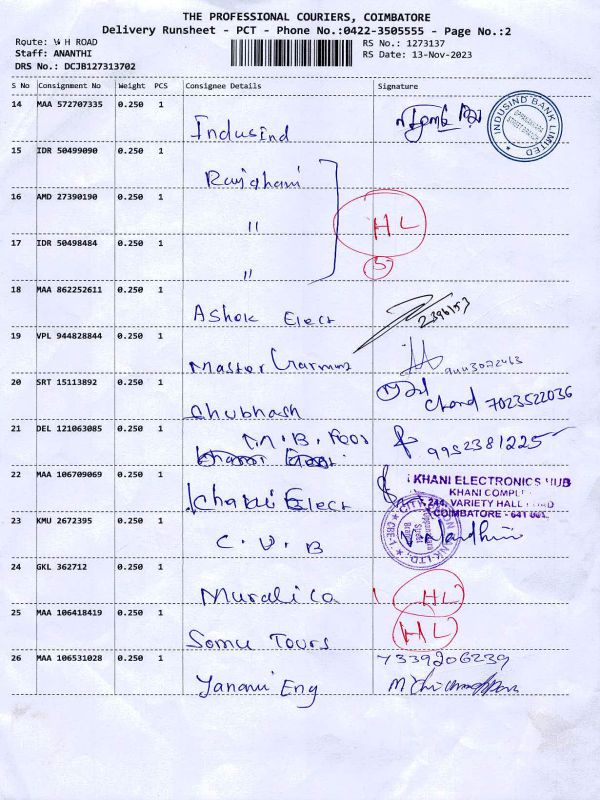 THE PROFESSIONAL COURIERS, COIMBATORE
Delivery Runsheet - PCT - Phone No.:0422-3505555 - Page No.:2
Route: ¼ H ROAD
RS No.: 1273137
Staff: ANANTHI
RS Date: 13-Nov-2023
DRS No.: DCJB127313702
S No Consignment No Weight PCS Consignee Details Signature
14 MAA 572707335 0.250 1
Indusind
INDUSIND BANK LIMITED
15 IDR 50499090 0.250 1
Rajghani
16 AMD 27390190 0.250 1
"
HL
17 IDR 50498484 0.250 1
"
5
18 MAA 862252611 0.250 1
Ashok Elect
2396153
19 VPL 944828844 0.250 1
Master
20 SRT 15113892 0.250 1
Shubhash
Chand 7023522036
21 DEL 121063085 0.250 1
M. B. Foos
9952381225
22 MAA 106709069 0.250 1
Khani Elect
KHANI ELECTRONICS HUB
KHANI COMPL
244, VARIETY HALL ROAD
COIMBATORE - 641 001.
23 KMU 2672395 0.250 1
C. U. B
CITY UNION BANK LTD.
24 GKL 362712 0.250 1
Murali Ca
HL
25 MAA 106418419 0.250 1
Somu Tours
HL
26 MAA 106531028 0.250 1
7339206239
Yanani Eng